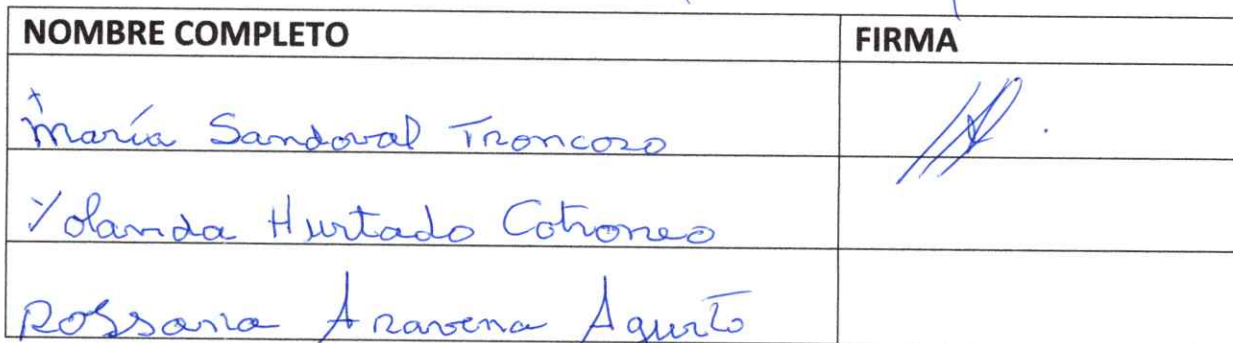 NOMBRE COMPLETO FIRMA
María Sandoval Troncoso
Yolanda Hurtado Cotroneo
Rossana Aravena Agurto